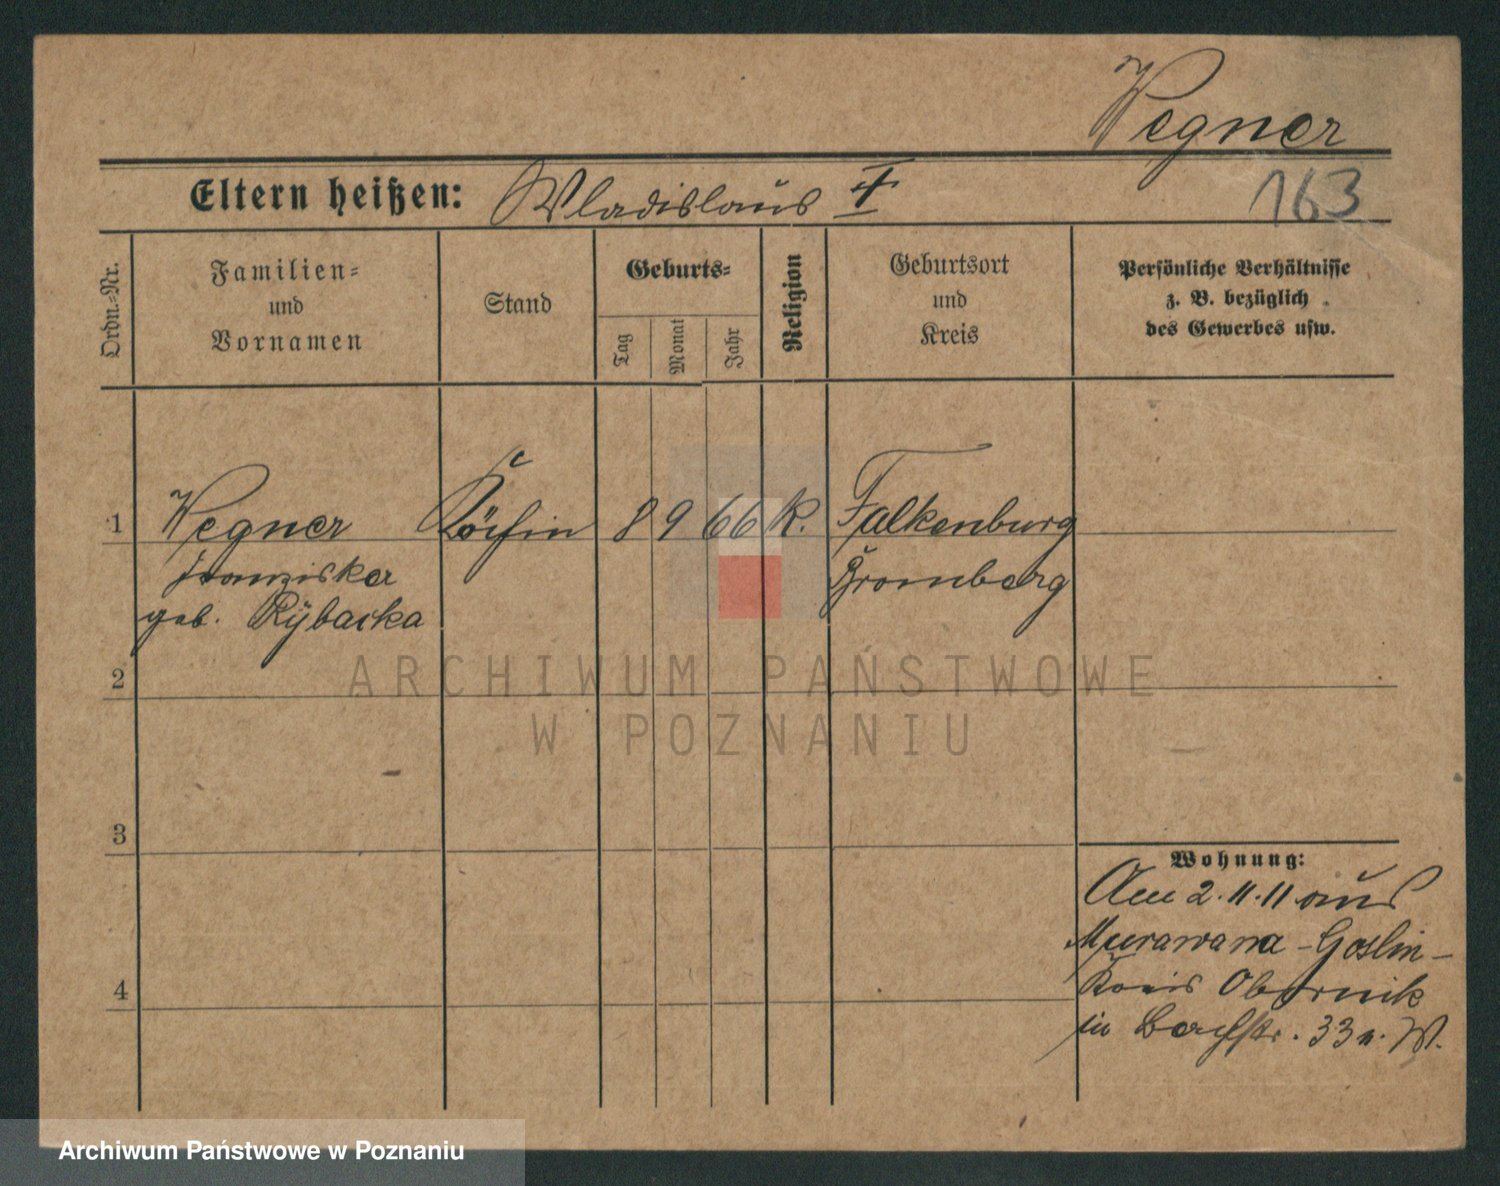 Wegner
Eltern heißen: Wladislaus
163
Ordn.-Nr.
Familien-
und
Vornamen
Stand
Geburts-
Tag
Monat
Jahr
Religion
Geburtsort
und
Kreis
Persönliche Verhältnisse
z. B. bezüglich
des Gewerbes usw.
1 Wegner Köchin 8 9 66 K. Falkenburg
Franziska Bromberg
geb. Rÿbacka
2
ARCHIWUM PAŃSTWOWE
W POZNANIU
3
Wohnung:
Am 2.11.11 aus
Murawana-Goslin-
Kreis Obornik
in Bachstr. 33
4
Archiwum Państwowe w Poznaniu